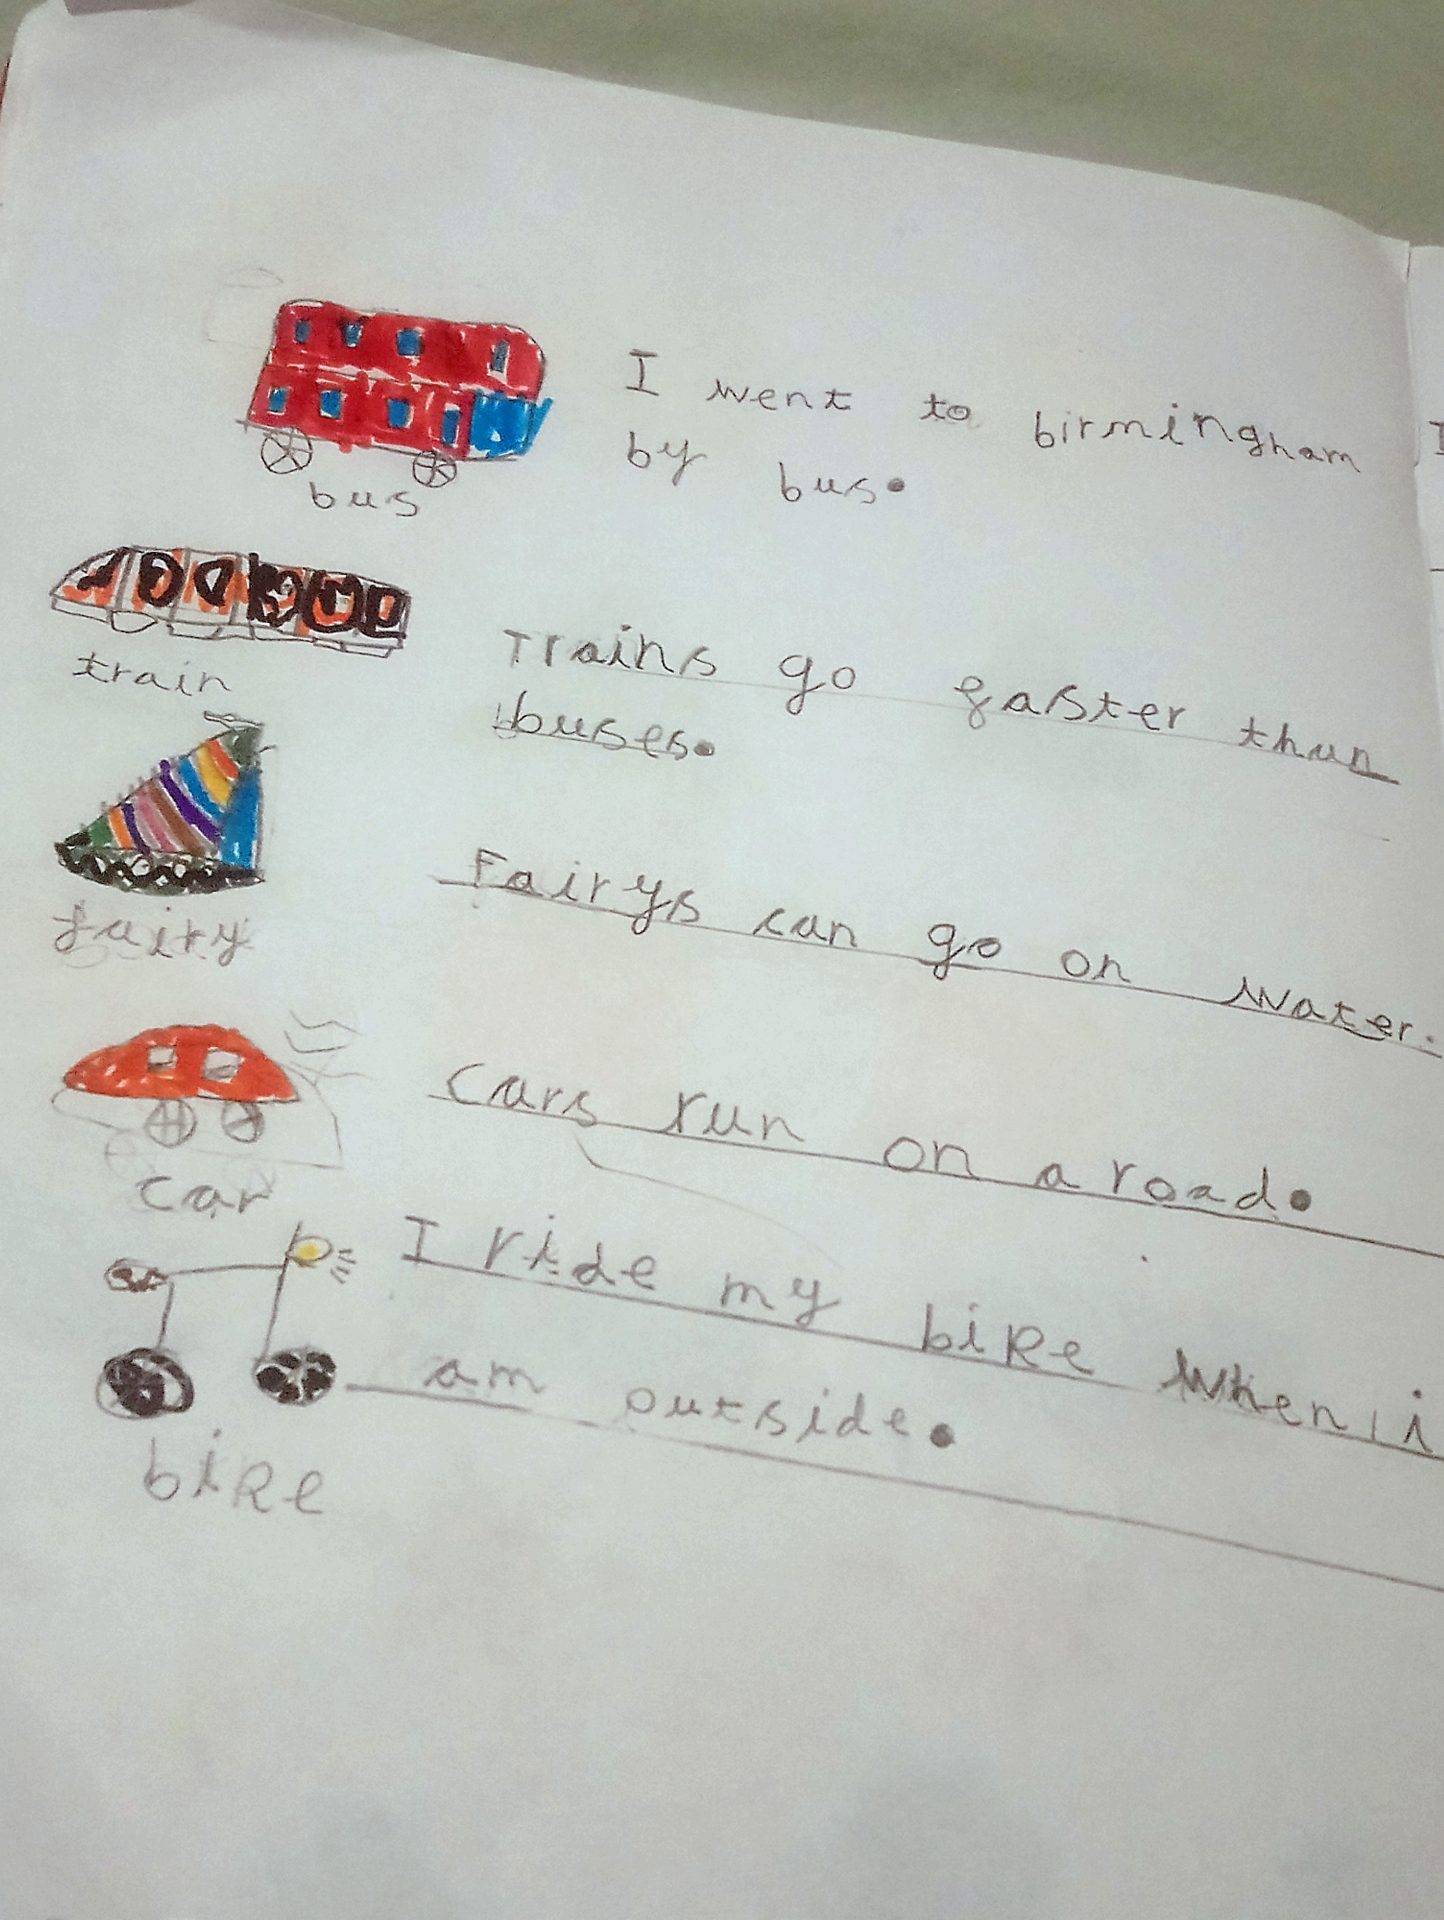 I went to birmingham
by bus.
bus
I
Trains go faster than
buses.
train
Fairys can go on water.
fairy
Cars run on a road.
car
I ride my bike when i
am outside.
bike